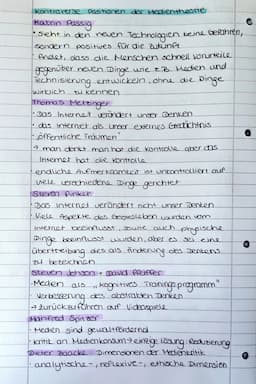 Kontroverse Positionen der Medientheorie
Kathrin Passig
• sieht in den neuen Technologien keine Gefahren,
sondern positives für die Zukunft
• findet, dass die Menschen schnell Vorurteile
gegenüber neuen Dinge wie z.B. Medien und
Technisierung entwickeln, ohne die Dinge
wirklich zu kennen
Thomas Metzinger
• Das Internet verändert unser Denken
• das Internet als unser externes Gedächtnis
• "öffentliche Träumen"
→ man denkt man hat die Kontrolle aber das
Internet hat die Kontrolle
• endliche Aufmerksamkeit ist uncontrolliert auf
viele verschiedene Dinge gerichtet
Steven Pinker
• Das Internet verändert nicht unser Denken
• Viele Aspekte des werden vom
Internet beeinflusst, sowie auch physische
Dinge beeinflusst wurden, aber es sei eine
Übertreibung dies als Änderung des Denkens
zu bezeichnen
Steven Johnson + David Pfeifer
• Medien als "kognitives Trainingsprogramm"
• Verbesserung des abstrakten Denken
→ zurückzuführen auf Videospiele
Manfred Spitzer
• Medien sind gewaltfördernd
• Kritik an Medienkonsum → einzige Lösung: Reduzierung
Dieter Baacke - Dimensionen der Medienkritik
• analytische-, reflexive-, ethische Dimension